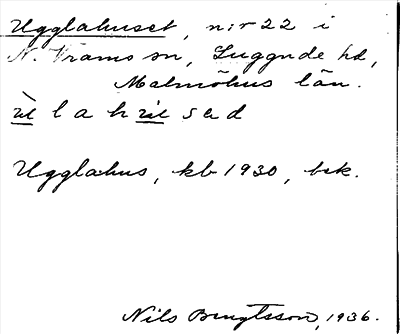 Ugglahuset, n:r 22 i
N. Vrams sn, Luggude hd,
Malmöhus län.
Ugglahus, kb 1930, bek.
Nils Bengtsson, 1936.